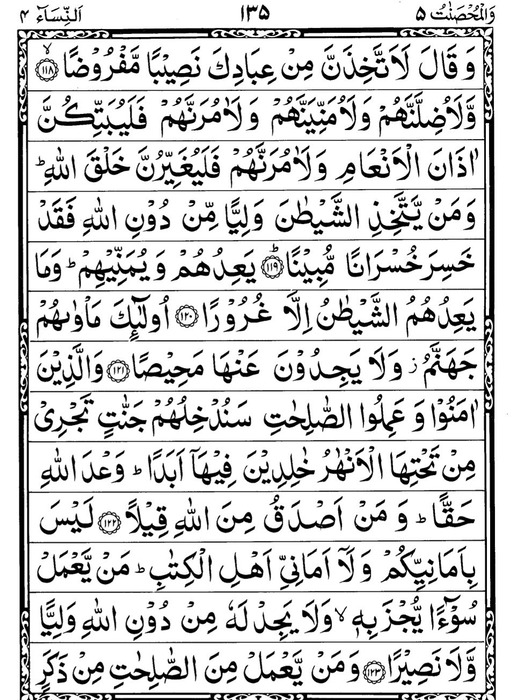 وَالْمُحْصَنٰتُ ۵ ۱۳۵ اَلنِّسَآءِ ۴
وَ قَالَ لَاَتَّخِذَنَّ مِنْ عِبَادِكَ نَصِيْبًا مَّفْرُوْضًا ۙ﴿۱۱۸﴾
وَّلَاُضِلَّنَّهُمْ وَلَاُمَنِّيَنَّهُمْ وَلَاٰمُرَنَّهُمْ فَلَيُبَتِّكُنَّ
اٰذَانَ الْاَنْعَامِ وَلَاٰمُرَنَّهُمْ فَلَيُغَيِّرُنَّ خَلْقَ اللّٰهِ ؕ
وَمَنْ يَّتَّخِذِ الشَّيْطٰنَ وَلِيًّا مِّنْ دُوْنِ اللّٰهِ فَقَدْ
خَسِرَ خُسْرَانًا مُّبِيْنًا ؕ﴿۱۱۹﴾ يَعِدُهُمْ وَيُمَنِّيْهِمْ ؕ وَمَا
يَعِدُهُمُ الشَّيْطٰنُ اِلَّا غُرُوْرًا ﴿۱۲۰﴾ اُولٰٓئِكَ مَاْوٰىهُمْ
جَهَنَّمُ ؗ وَلَا يَجِدُوْنَ عَنْهَا مَحِيْصًا ﴿۱۲۱﴾ وَالَّذِيْنَ
اٰمَنُوْا وَ عَمِلُوا الصّٰلِحٰتِ سَنُدْخِلُهُمْ جَنّٰتٍ تَجْرِيْ
مِنْ تَحْتِهَا الْاَنْهٰرُ خٰلِدِيْنَ فِيْهَاۤ اَبَدًا ؕ وَعْدَ اللّٰهِ
حَقًّا ؕ وَ مَنْ اَصْدَقُ مِنَ اللّٰهِ قِيْلًا ﴿۱۲۲﴾ لَيْسَ
بِاَمَانِيِّكُمْ وَ لَاۤ اَمَانِيِّ اَهْلِ الْكِتٰبِ ؕ مَنْ يَّعْمَلْ
سُوْٓءًا يُّجْزَ بِهٖ ۙ وَلَا يَجِدْ لَهٗ مِنْ دُوْنِ اللّٰهِ وَلِيًّا
وَّلَا نَصِيْرًا ﴿۱۲۳﴾ وَ مَنْ يَّعْمَلْ مِنَ الصّٰلِحٰتِ مِنْ ذَكَرٍ